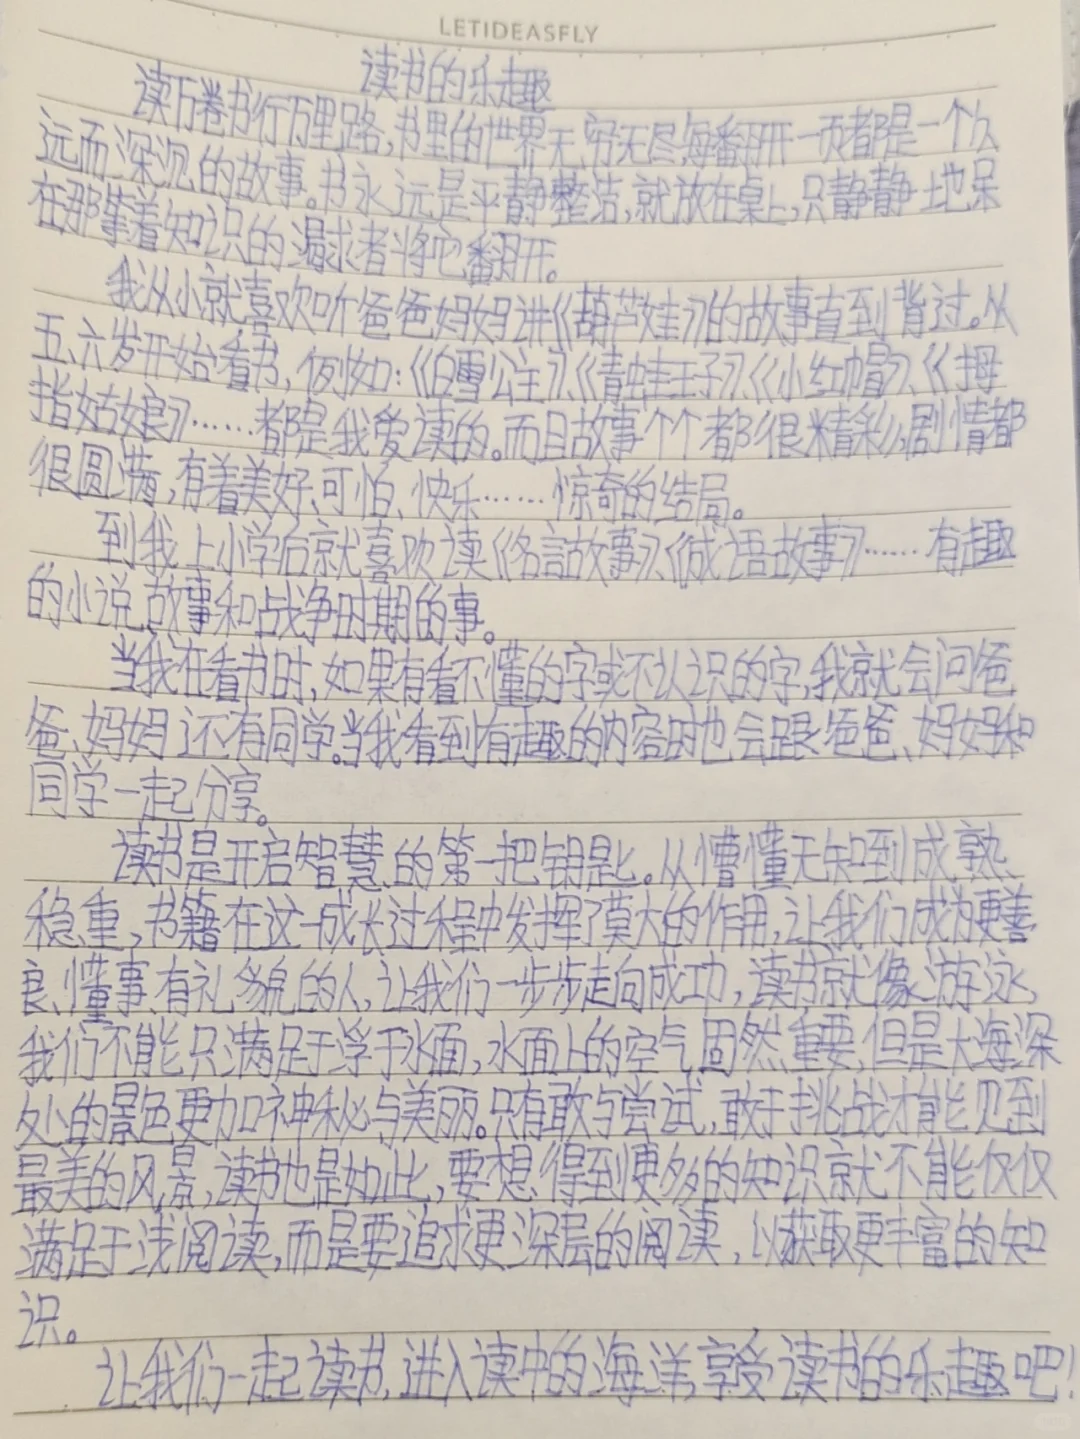 LETIDEASFLY
读书的乐趣
读万卷书行万里路,书里的世界无穷无尽,每翻开一页都是一个久
远而深沉的故事。书永远是平静整洁,就放在桌上,只静静地呆
在那等着知识的渴求者将它翻开。
我从小就喜欢听爸爸妈妈讲《葫芦娃》的故事直到背过。从
五、六岁开始看书,例如:《白雪公主》、《青蛙王子》、《小红帽》、《拇
指姑娘》……都是我爱读的。而且故事个个都很精彩,剧情都
很圆满,有着美好、可怕、快乐……惊奇的结局。
到我上小学后就喜欢读《名言故事》、《成语故事》……有趣
的小说、故事和战争时期的事。
当我在看书时,如果有看不懂的字或不认识的字,我就会问爸
爸、妈妈还有同学。当我看到有趣的内容时也会跟爸爸、妈妈和
同学一起分享。
读书是开启智慧的第一把钥匙。从懵懂无知到成熟、
稳重,书籍在这一成长过程中发挥了莫大的作用,让我们成为更善
良、懂事、有礼貌的人,让我们一步步走向成功,读书就像游泳,
我们不能只满足于浮于水面,水面上的空气固然重要,但是大海深
处的景色更加神秘与美丽。只有敢与尝试,敢于挑战才能见到
最美的风景,读书也是如此,要想得到更多的知识就不能仅仅
满足于浅阅读,而是要追求更深层的阅读,以获取更丰富的知
识。
让我们一起读书,进入读中的海洋,享受读书的乐趣吧!